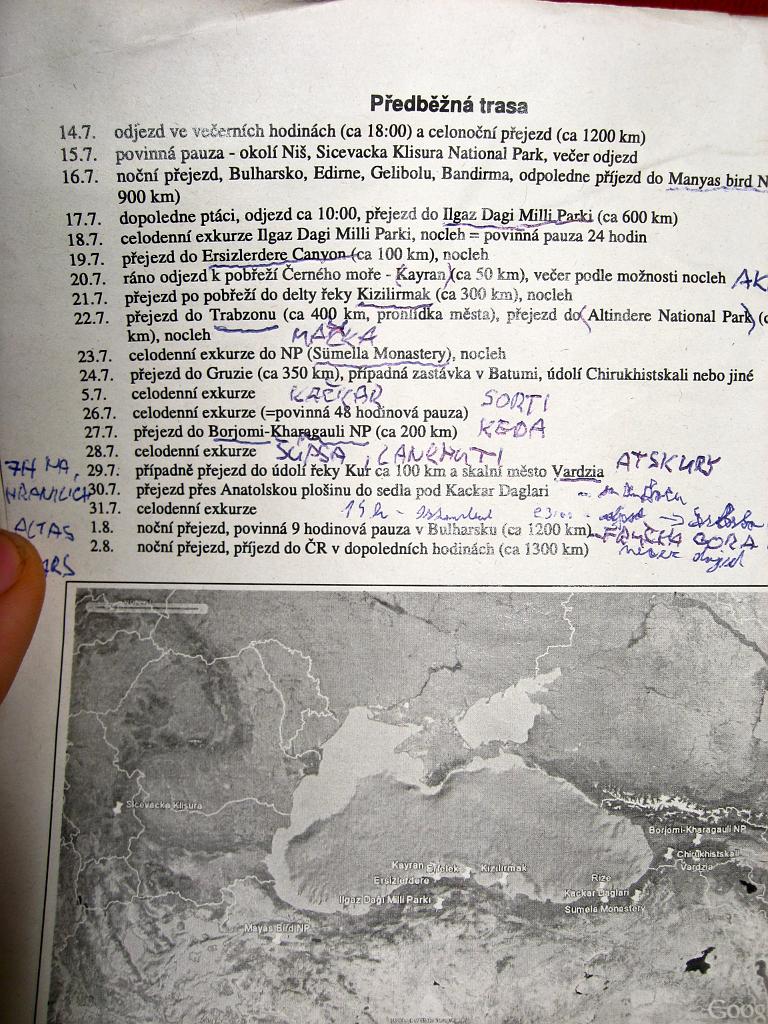 Předběžná trasa
14.7. odjezd ve večerních hodinách (ca 18:00) a celonoční přejezd (ca 1200 km)
15.7. povinná pauza - okolí Niš, Sicevacka Klisura National Park, večer odjezd
16.7. noční přejezd, Bulharsko, Edirne, Gelibolu, Bandirma, odpoledne příjezd do Manyas bird N
900 km)
17.7. dopoledne ptáci, odjezd ca 10:00, přejezd do Ilgaz Dagi Milli Parki (ca 600 km)
18.7. celodenní exkurze Ilgaz Dagi Milli Parki, nocleh = povinná pauza 24 hodin
19.7. přejezd do Ersizlerdere Canyon (ca 100 km), nocleh
20.7. ráno odjezd k pobřeží Černého moře - (Kayran) (ca 50 km), večer podle možnosti nocleh AK
21.7. přejezd po pobřeží do delty řeky Kizilirmak (ca 300 km), nocleh
22.7. přejezd do Trabzonu (ca 400 km, prohlídka města), přejezd do (Altindere National Park) (c
km), nocleh MAČKA
23.7. celodenní exkurze do NP (Sümella Monastery), nocleh
24.7. přejezd do Gruzie (ca 350 km), případná zastávka v Batumi, údolí Chirukhistskali nebo jiné
5.7. celodenní exkurze KAČKAR SORTI
26.7. celodenní exkurze (=povinná 48 hodinová pauza)
27.7. přejezd do Borjomi-Kharagauli NP (ca 200 km) KEDA
28.7. celodenní exkurze SUPSA, LANCHUTI
29.7. případně přejezd do údolí řeky Kur ca 100 km a skalní město Vardzia ATSKURY
7H NA
HRANICÍCH
30.7. přejezd přes Anatolskou plošinu do sedla pod Kackar Daglari
31.7. celodenní exkurze
1.8. noční přejezd, povinná 9 hodinová pauza v Bulharsku (ca 1200 km) GORA
2.8. noční přejezd, příjezd do ČR v dopoledních hodinách (ca 1300 km)
Sicevacka Klisura
Borjomi-Kharagauli NP
Chirukhistskali
Vardzia
Kayran Erfelek Kizilirmak
Ersizlerdere
Rize
Kackar Daglari
Ilgaz Dagi Milli Parki
Sümela Monastery
Mayas Bird NP
Goog